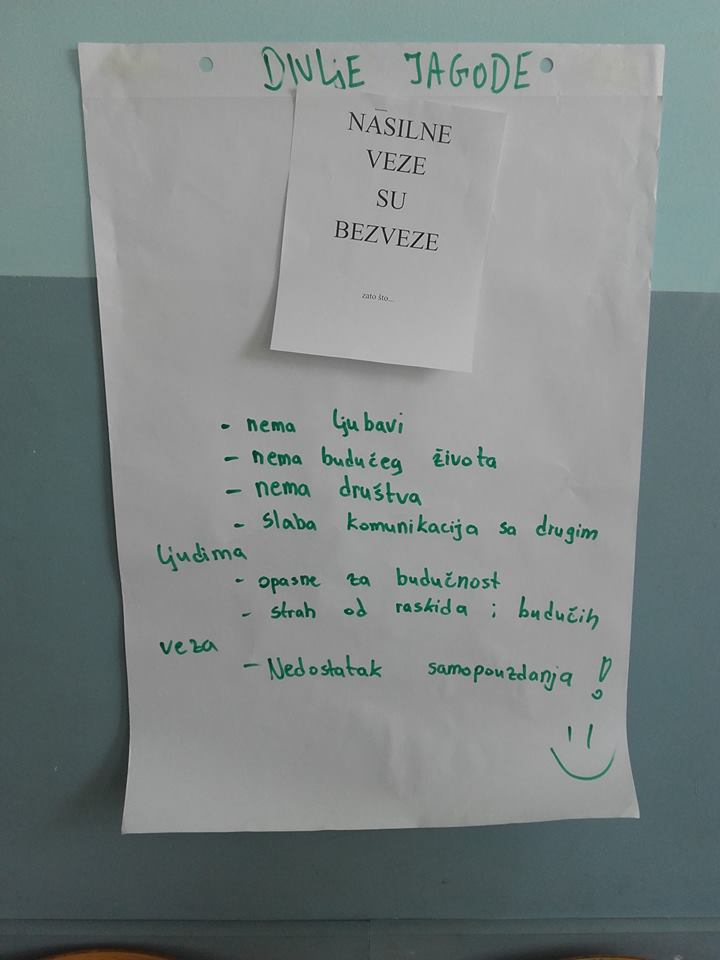 DIVLjE JAGODE
NASILNE
VEZE
SU
BEZVEZE
zato što...
- nema ljubavi
- nema budućeg života
- nema društva
- slaba komunikacija sa drugim
ljudima
- opasne za budučnost
- strah od raskida i budučih
veza
- Nedostatak samopouzdanja !